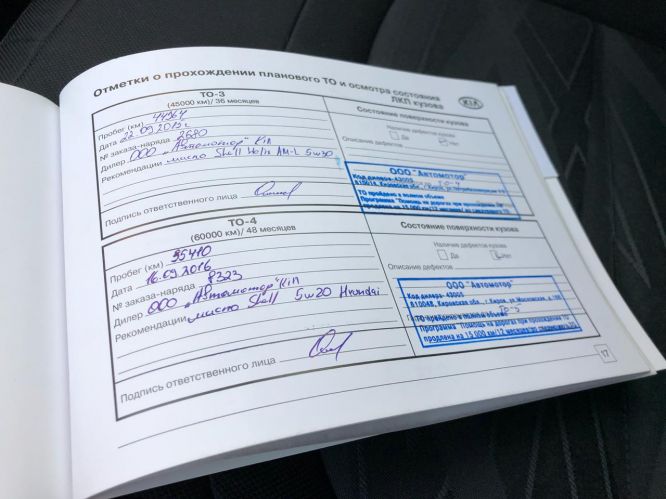 Отметки о прохождении планового ТО и осмотра состояния
ЛКП кузова
KIA
ТО-3
(45000 км)/ 36 месяцев
Пробег (км) 44964
Дата 22.09.2015г.
№ заказа-наряда 2680
Дилер ООО „Автомотор" Kia
Рекомендации масло Shell Helix AM-L 5w30
Подпись ответственного лица
Состояние поверхности кузова
Наличие дефектов кузова
Да Нет
Описание дефектов
ООО "Автомотор"
Код дилера- 43005
ТО пройдено в полном объеме
Программа "Помощь на дорогах при прохождении ТО
продлена на 15 000 км/12 месяцев/ до следующего ТО
ТО-4
(60000 км)/ 48 месяцев
Пробег (км) 55410
Дата 16.09.2016
№ заказа-наряда 8323
Дилер ООО „Автомотор" Kia
Рекомендации масло Shell 5w20 Hyundai
Подпись ответственного лица
Состояние поверхности кузова
Наличие дефектов кузова
Да Нет
Описание дефектов
ООО "Автомотор"
Код дилера- 43005
Кировская обл., г. Киров, ул. Московская, д.
ТО-5
ТО пройдено в полном объеме
Программа "Помощь на дорогах при прохождении ТО
продлена на 15 000 км/12 месяцев/до следующего ТО
17